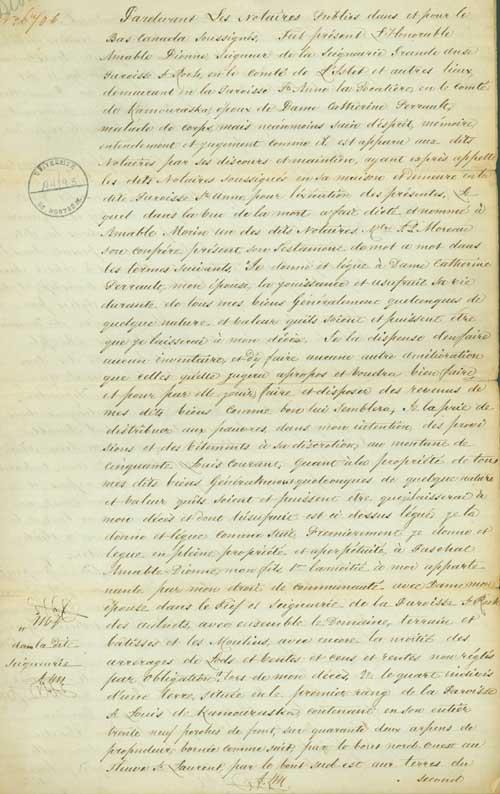 Pardevant Les Notaires Publics dans et pour le
Bas Canada Soussignés, Fut présent L'Honorable
Amable Dionne Seigneur de la Seigneurie Grande anse
Paroisse St Roch, en le Comté de L'Islet et autres lieux,
demeurant en la Paroisse Ste Anne la Pocatière, en le comté
de Kamouraska, époux de Dame Catherine Perrault,
malade de corps, mais néanmoins sain d'esprit, mémoire
entendement et jugement comme il est apparu aux dits
Notaires par ses discours et maintien, ayant exprès appellé
les dits Notaires Soussignés en sa maison et demeure en la
dite Paroisse Ste Anne pour l'exécution des présentes, Le
quel dans la vue de la mort a fait dicté et nommé à
Amable Morin un des dits Notaires Mtre Moreau
son confrère présent son Testament de mot a mot dans
les termes suivants, Je donne et lègue à Dame Catherine
Perrault, mon épouse, la jouissance et usufruit sa vie
durante, de tous mes biens Généralement quelconques de
quelque nature et valeur qu'ils soient et puissent être
que je laisserai à mon décès. Je la dispense d'en faire
aucun inventaire, et de faire aucune autre amélioration
que celles qu'elle jugera apropos et voudra bien faire,
et pour par elle jouir, faire et disposer des revenus de
mes dits biens comme bon lui Semblera, Je la prie de
distribuer aux pauvres, dans mon intention, des provi
sions et des vêtements à sa discrétion, au montant de
cinquante Louis courant, Quant à la propriété de tous
mes dits biens Généralement quelconques de quelque nature
et valeur qu'ils soient et puissent être que je laisserai à
mon décès et dont l'usufruit est ci dessus légué, je la
donne et lègue comme suit, Premièrement je donne et
lègue en pleine propriété et a perpétuité, à Paschal
Amable Dionne, mon fils 1º la moitié à moi apparte
nante par mon droit de communauté avec Dame mon
épouse dans le Fief et Seigneurie de la Paroisse St Roch
des aulnets, avec ensemble le Domaine, terrain et
bâtisses et les Moulins, avec encore la moitié des
arrérages de Lods et ventes et cens et rentes non réglés
par Obligation, lors de mon décès, 2º le quart indivis
d'une terre, située en le premier rang de la Paroisse
St Louis de Kamouraska, contenant en son entier
trente neuf perches de front, sur quarante deux arpens de
profondeur, bornée comme suit, par le bout nord-ouest au
fleuve St Laurent, par le bout sud-est aux terres du
second
dans la dite
Seigneurie
A.M
A.M
UNIVERSITÉ
DE MONTRÉAL